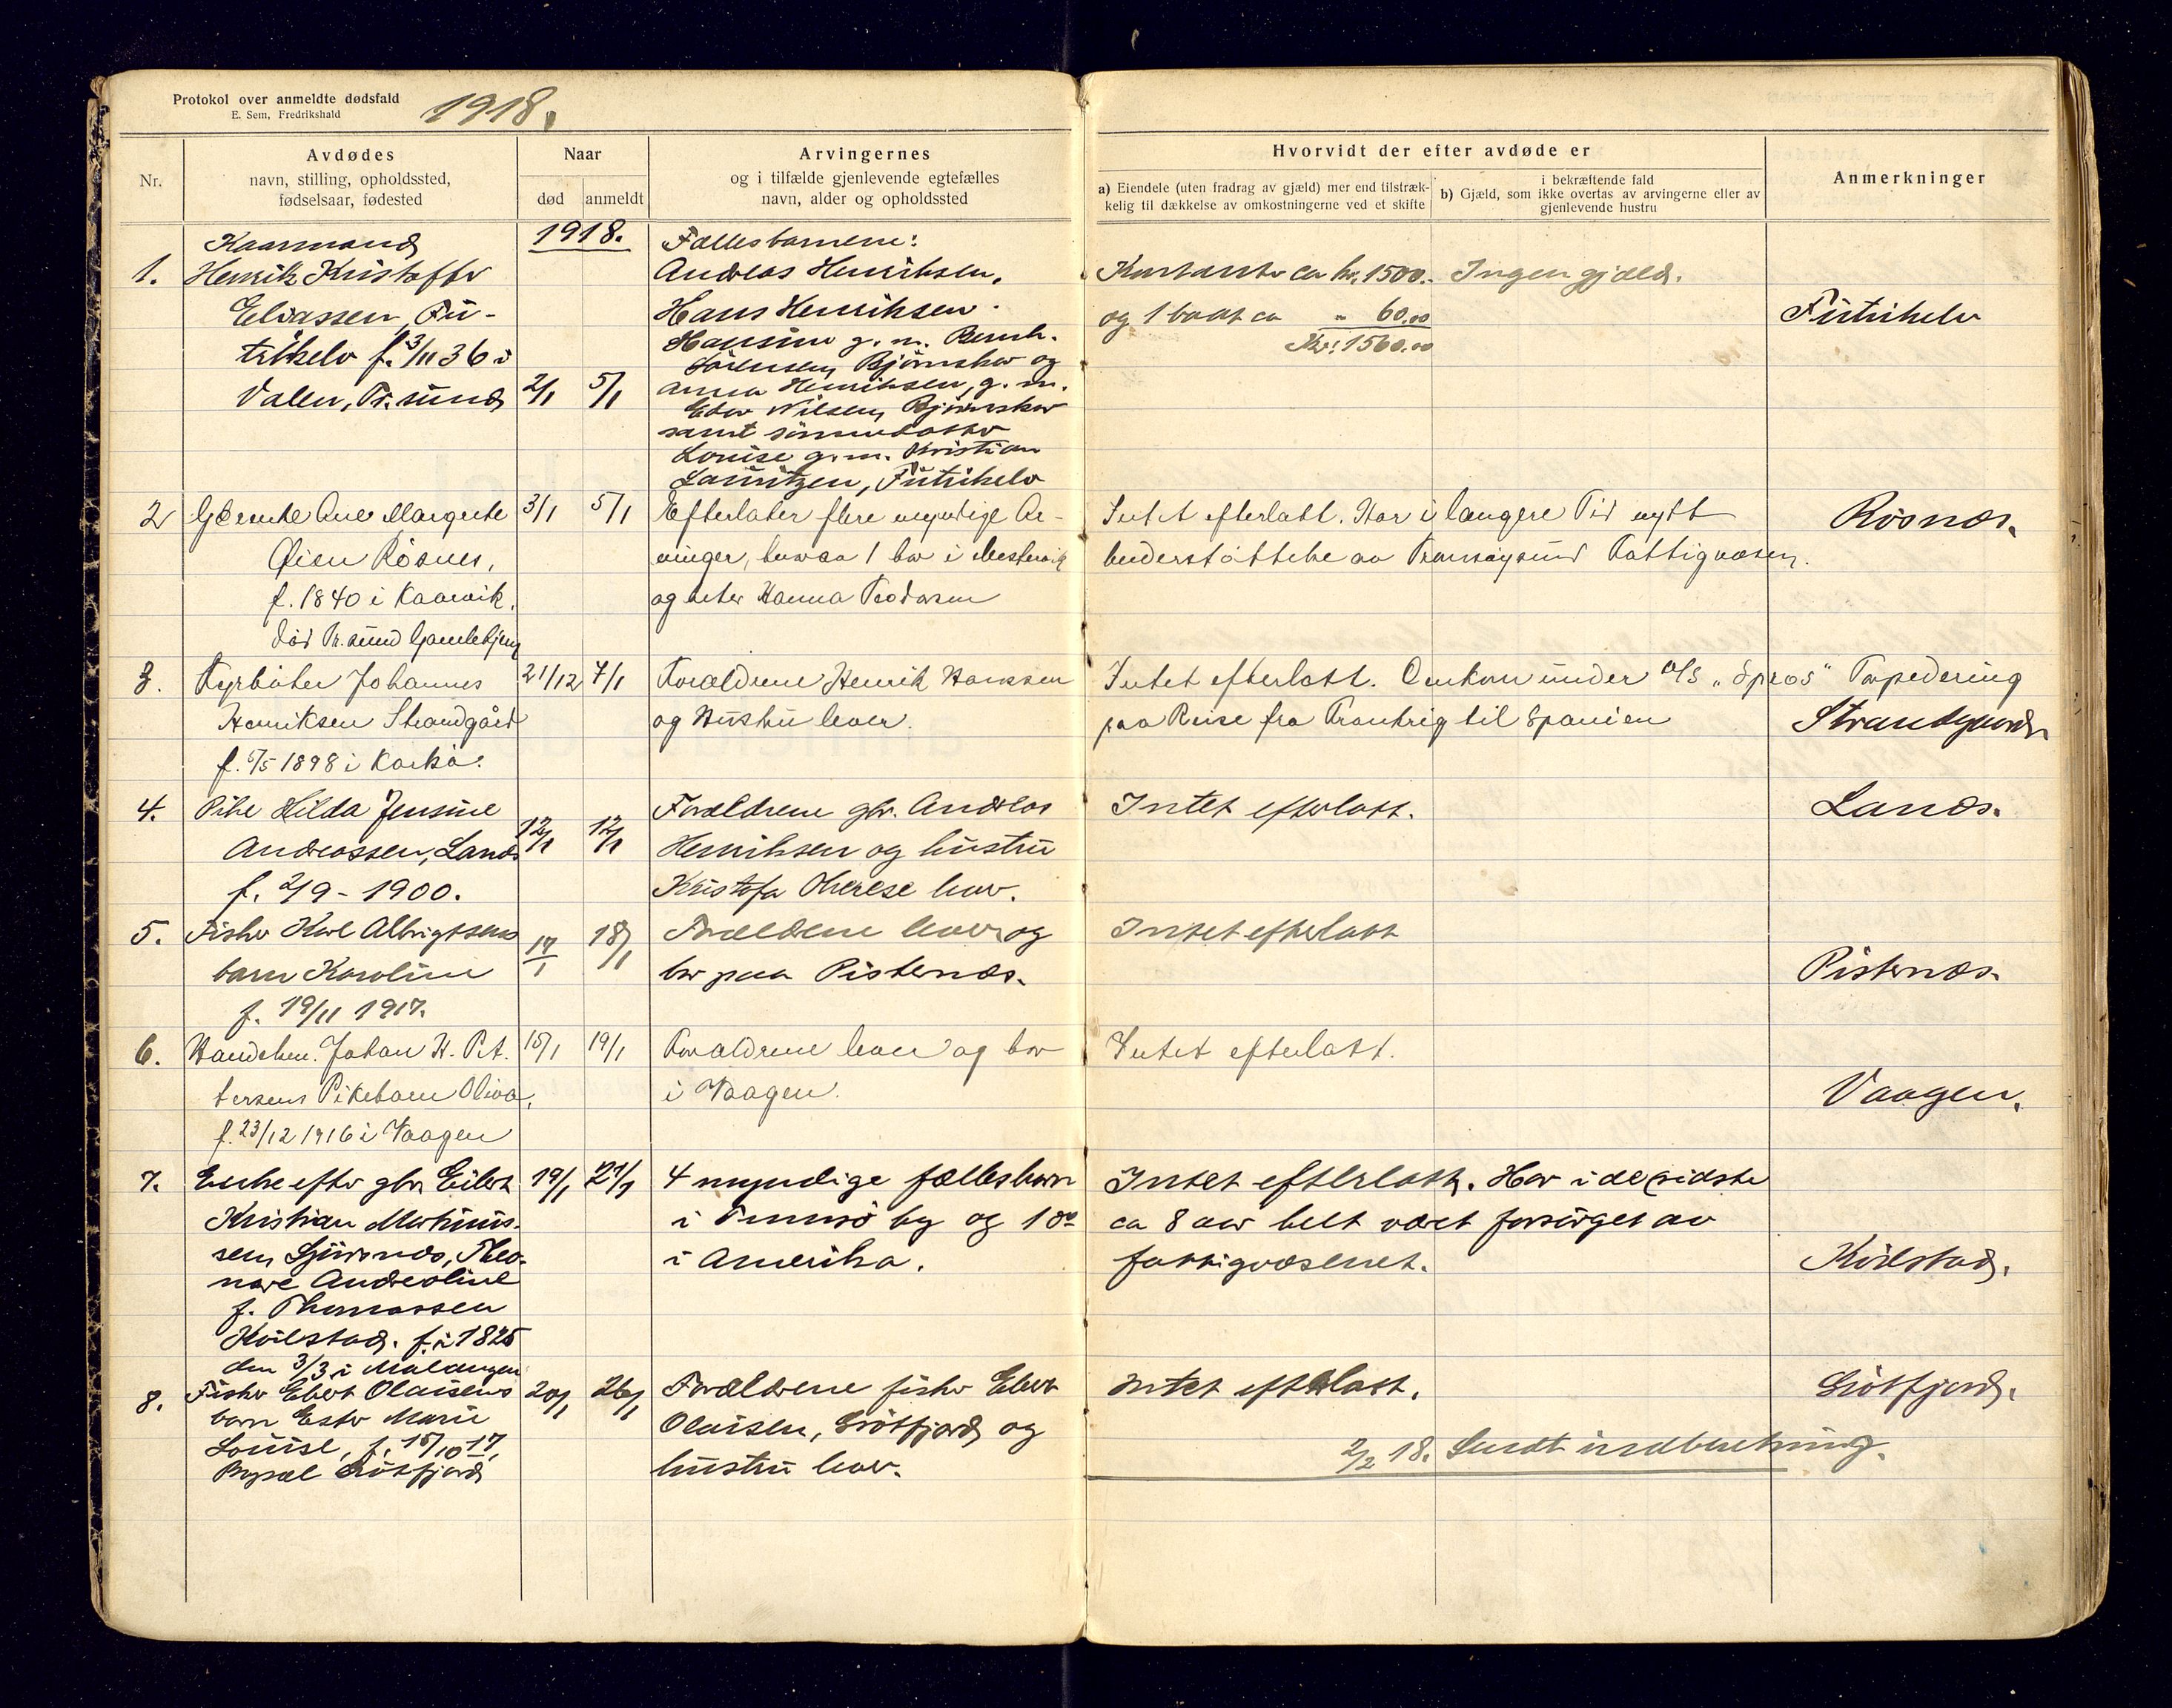 Protokol over anmeldte dødsfald
E. Sem, Fredrikshald
1918.
Nr.
Avdødes
navn, stilling, opholdssted,
fødselsaar, fødested
Naar
død anmeldt
Arvingernes
og i tilfælde gjenlevende egtefælles
navn, alder og opholdssted
Hvorvidt der efter avdøde er
a) Eiendele (uten fradrag av gjæld) mer end tilstræk-
kelig til dækkelse av omkostningerne ved et skifte
i bekræftende fald
b) Gjæld, som ikke overtas av arvingerne eller av
gjenlevende hustru
Anmerkninger
1918.
1.
Kaarmand
Henrik Kristoffer
Eliassen, Fu-
trikelv f. 3/11 36 i
Valen, Tr.sund
2/1 5/1
Fællesbarnene:
Andreas Henriksen,
Hans Henriksen.
Hansine g. m. Bernh.
Sørensen, Bjørnskar og
Anna Henriksen, g. m.
Edv Nilsen, Bjørnskar
samt sønnedatter
Louise g. m. Kristian
Lauritzen, Futrikelv
Kontanter ca kr. 1500.-
og 1 baat ca " 60.00
Kr: 1560.00
Ingen gjæld.
Futrikelv
2
Gårmke Ane Margrete
Øien Rösnes,
f. 1840 i Kaarvik,
död Tr.sund Gamlehjem
3/1 5/1
Efterlater flere myndige Ar-
vinger, hvoraf 1 bor i Mestervik
og heter Hanna Teodorsen
Intet efterlatt. Har i længere Tid nytt
understöttelse av Tromsöysund Fattigvæsen.
Rösnæs.
3.
Fyrböter Johannes
Henriksen Strandgård
f. 5/5 1898 i Karlsö.
21/12 7/1
Forældrene Henrik Hanssen
og Hustru lever.
Intet efterlatt. Omkom under D/S "Spros" Torpedering
paa Reise fra Frankrig til Spanien
Strandgaard.
4.
Pike Hilda Jensine
Andreassen, Lanes
f. 2/9 - 1900.
12/1 12/1
Forældrene gbr. Andreas
Henriksen og hustru
Kristofa Therese lever.
Intet efterlatt.
Lanæs.
5.
Fisker Karl Albrigtsens
barn Karoline
f. 19/11 1917.
17/1 18/1
Forældrene lever og
bor paa Pisternæs.
Intet efterlatt
Pisternæs.
6.
Handelsm. Johan H. Pet.
tersens Pikebarn Oliva,
f. 23/12 1916 i Vaagen
15/1 19/1
Forældrene lever og bor
i Vaagen.
Intet efterlatt.
Vaagen.
7.
Enke efter gbr. Eilert
Kristian Martinus-
sen, Sjursnæs, Theo-
nore Andreoline
f. Thomassen
Kvilstad. f. i 1825
den 3/3 i Malangen
19/1 21/1
4 myndige fællesbarn
i Tromsö by og 1 do
i Amerika.
Intet efterlatt. Har i de sidste
ca 8 aar helt været forsörget av
fattigvæsenet.
Kvilstad.
8.
Fisker Ebert Olaisens
barn Ester Marie
Louise, f. 15/10 17,
Grötfjord
20/1 26/1
Forældrene fisker Ebert
Olaisen, Grötfjord og
hustru lever.
Intet efterlatt.
Grötfjord.
2/2 18. Sendt indberetning.